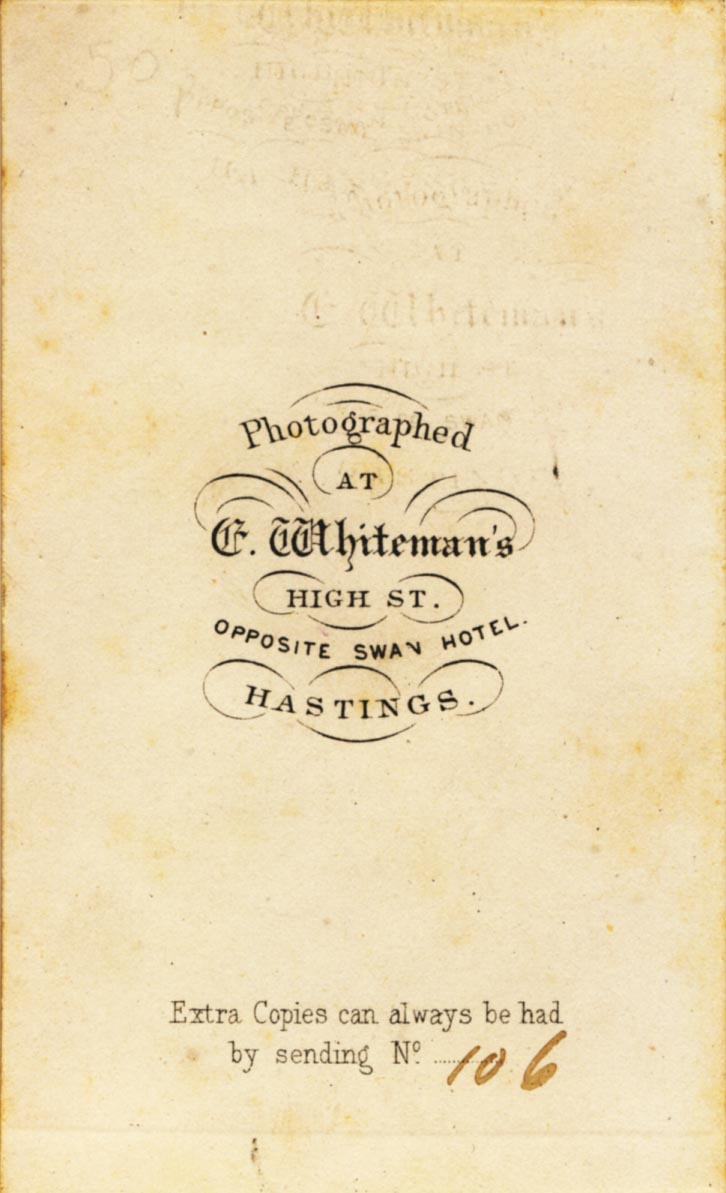 50
Photographed
AT
E. Whiteman's
HIGH ST.
OPPOSITE SWAN HOTEL.
HASTINGS.
Extra Copies can always be had
by sending Nº ........ 106